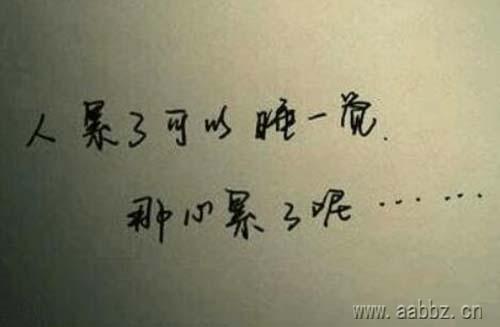 人累了可以睡一觉.
那心累了呢……
www.aabbz.cn